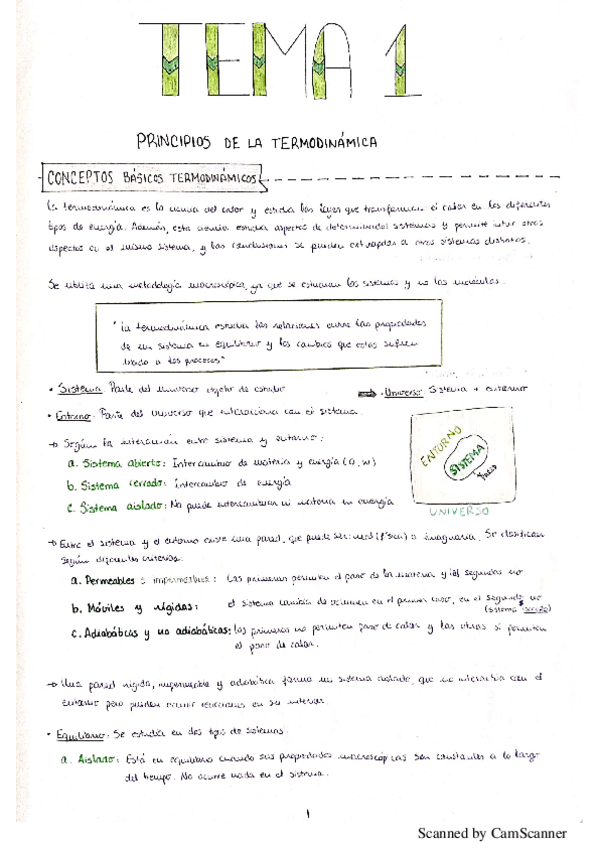 TEMA 1
PRINCIPIOS DE LA TERMODINÁMICA
CONCEPTOS BÁSICOS TERMODINÁMICOS
La termodinámica es la ciencia del calor y estudia las leyes que transforman el calor en los diferentes
tipos de energía. Además, esta ciencia estudia aspectos de determinados sistemas y permite intuir otros
aspectos en el mismo sistema, y las conclusiones se pueden extrapolar a otros sistemas distintos.
Se utiliza una metodología macroscópica, ya que se estudian los sistemas y no las moléculas.
"La termodinámica estudia las relaciones entre las propiedades
de un sistema en equilibrio y los cambios que estas sufren
debido a los procesos"
• Sistema: Parte del universo objeto de estudio
• Universo: Sistema + entorno
• Entorno: Parte del universo que interacciona con el sistema.
→ Según la interacción entre sistema y entorno:
a. Sistema abierto: Intercambio de materia y energía (Q, W)
b. Sistema cerrado: Intercambio de energía
c. Sistema aislado: No puede intercambiar ni materia ni energía
ENTORNO
SISTEMA
Pared
UNIVERSO
→ Entre el sistema y el entorno existe una pared, que puede ser: real (física) o imaginaria. Se clasifican
según diferentes criterios:
a. Permeables e impermeables: Las primeras permiten el paso de la materia y las segundas no
b. Móviles y rígidas: el sistema cambia de volumen en el primer caso, en el segundo no
(sistema cerrado)
c. Adiabáticas y no adiabáticas: las primeras no permiten paso de calor y las otras si permiten
el paso de calor.
→ Una pared rígida, impermeable y adiabática forma un sistema aislado, que no interactúa con el
entorno pero pueden ocurrir reacciones en su interior.
• Equilibrio: Se estudia en dos tipos de sistemas:
a. Aislado: Está en equilibrio cuando sus propiedades macroscópicas son constantes a lo largo
del tiempo. No ocurre nada en el sistema.
1
Scanned by CamScanner